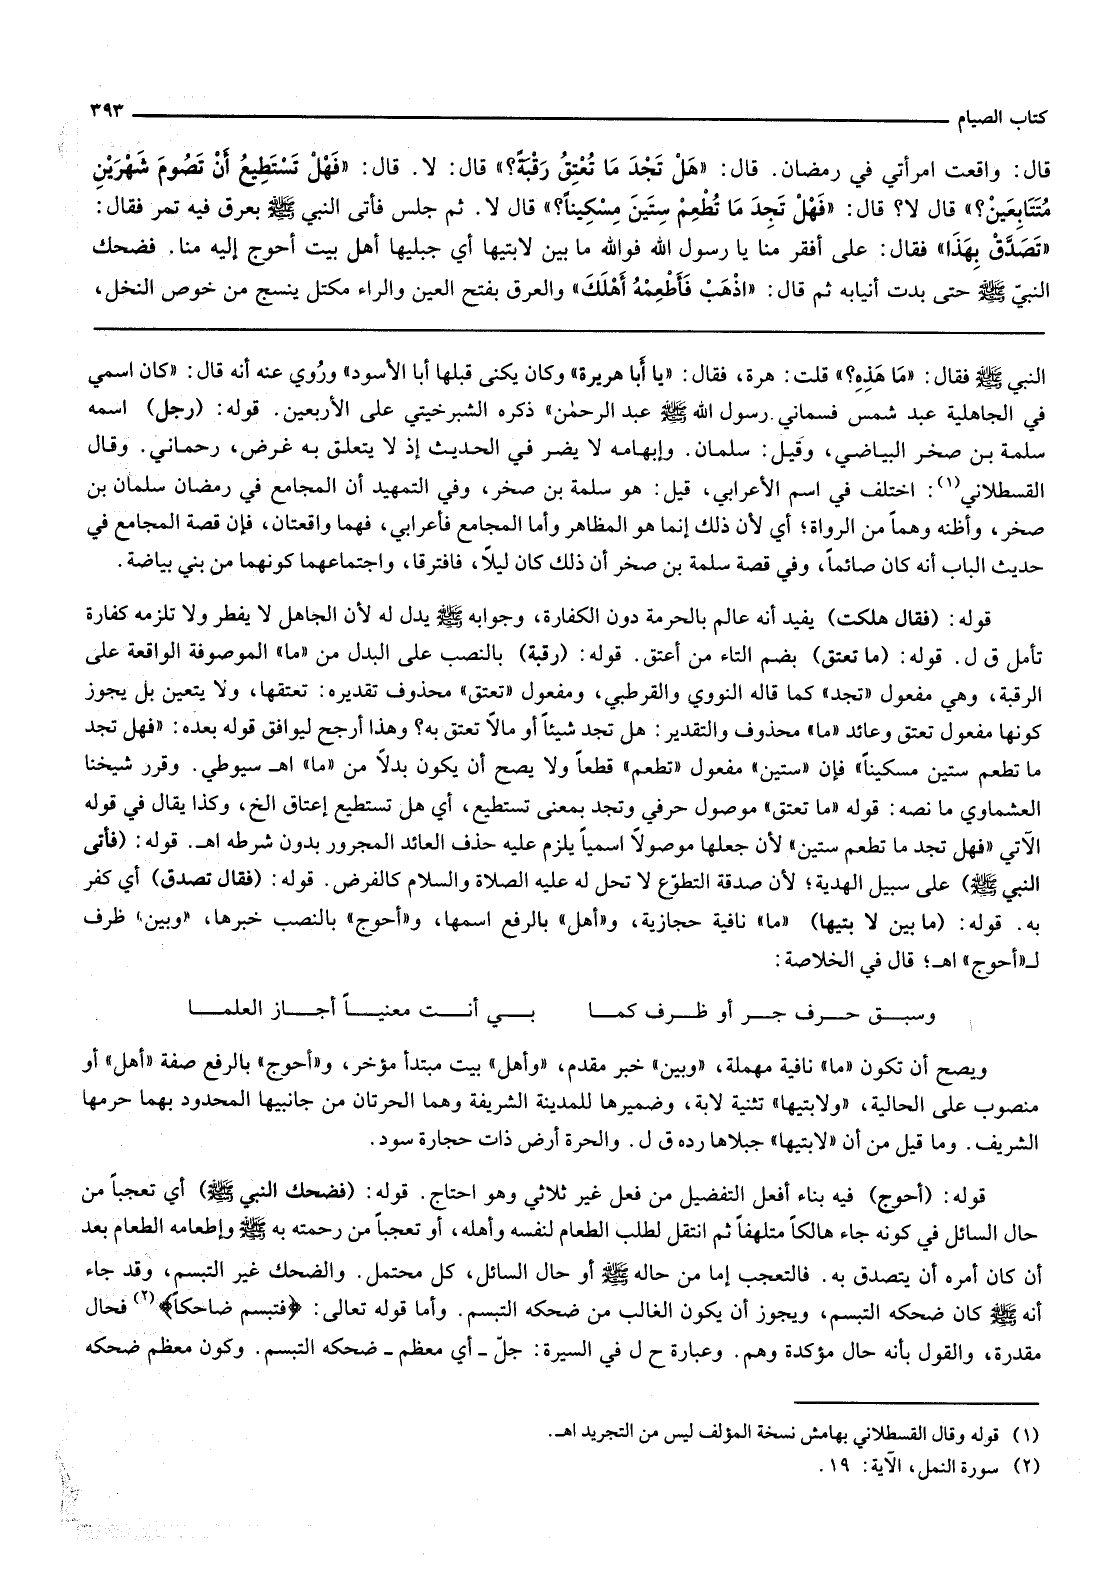 كتاب الصيام ٣٩٣
قال: واقعت امرأتي في رمضان. قال: «هَلْ تَجْدَ مَا تُعْتِقُ رَقْبَةً؟» قال: لا. قال: «فَهْلْ تَسْتَطِيعُ أَنْ تَصُومَ شَهْرَيْنِ
مُتَتَابِعَيْنْ؟» قال لا؟ قال: «فَهْلْ تَجِدَ مَا تُطْعِمْ سِتَينَ مِسْكِيناً؟» قال لا. ثم جلس فأتى النبي ﷺ بعرق فيه تمر فقال:
«تَصَدَّقْ بِهَذَا» فقال: على أفقر منا يا رسول الله فوالله ما بين لابتيها أي جبليها أهل بيت أحوج إليه منا. فضحك
النبيّ ﷺ حتى بدت أنيابه ثم قال: «اذْهَبْ فَأَطْعِمْهُ أَهْلَكَ» والعرق بفتح العين والراء مكتل ينسج من خوص النخل،
النبي ﷺ فقال: «مَا هَذِهِ؟» قلت: هرة، فقال: «يا أَبا هريرة» وكان يكنى قبلها أبا الأسود» ورُوي عنه أنه قال: «كان اسمي
في الجاهلية عبد شمس فسماني رسول الله ﷺ عبد الرحمٰن» ذكره الشبرخيتي على الأربعين. قوله: (رجل) اسمه
سلمة بن صخر البياضي، وقيل: سلمان. وإبهامه لا يضر في الحديث إذ لا يتعلق به غرض، رحماني. وقال
القسطلاني(١): اختلف في اسم الأعرابي، قيل: هو سلمة بن صخر، وفي التمهيد أن المجامع في رمضان سلمان بن
صخر، وأظنه وهماً من الرواة؛ أي لأن ذلك إنما هو المظاهر وأما المجامع فأعرابي، فهما واقعتان، فإن قصة المجامع في
حديث الباب أنه كان صائماً، وفي قصة سلمة بن صخر أن ذلك كان ليلاً، فافترقا، واجتماعهما كونهما من بني بياضة.
قوله: (فقال هلكت) يفيد أنه عالم بالحرمة دون الكفارة، وجوابه ﷺ يدل له لأن الجاهل لا يفطر ولا تلزمه كفارة
تأمل ق ل. قوله: (ما تعتق) بضم التاء من أعتق. قوله: (رقبة) بالنصب على البدل من «ما» الموصوفة الواقعة على
الرقبة، وهي مفعول «تجد» كما قاله النووي والقرطبي، ومفعول «تعتق» محذوف تقديره: تعتقها، ولا يتعين بل يجوز
كونها مفعول تعتق وعائد «ما» محذوف والتقدير: هل تجد شيئاً أو مالاً تعتق به؟ وهذا أرجح ليوافق قوله بعده: «فهل تجد
ما تطعم ستين مسكيناً» فإن «ستين» مفعول «تطعم» قطعاً ولا يصح أن يكون بدلاً من «ما» اهـ سيوطي. وقرر شيخنا
العشماوي ما نصه: قوله «ما تعتق» موصول حرفي وتجد بمعنى تستطيع، أي هل تستطيع إعتاق الخ، وكذا يقال في قوله
الآتي «فهل تجد ما تطعم ستين» لأن جعلها موصولاً اسمياً يلزم عليه حذف العائد المجرور بدون شرطه اهـ. قوله: (فأتى
النبي ﷺ) على سبيل الهدية؛ لأن صدقة التطوّع لا تحل له عليه الصلاة والسلام كالفرض. قوله: (فقال تصدق) أي كفر
به. قوله: (ما بين لا بتيها) «ما» نافية حجازية، و«أهل» بالرفع اسمها، و«أحوج» بالنصب خبرها، «وبين» ظرف
لـ«أحوج» اهـ؛ قال في الخلاصة:
وسبـق حـرف جـر أو ظـرف كمـا بـي أنـت معنيـاً أجـاز العلمـا
ويصح أن تكون «ما» نافية مهملة، «وبين» خبر مقدم، «وأهل» بيت مبتدأ مؤخر، و«أحوج» بالرفع صفة «أهل» أو
منصوب على الحالية، «ولابتيها» تثنية لابة، وضميرها للمدينة الشريفة وهما الحرتان من جانبيها المحدود بهما حرمها
الشريف. وما قيل من أن «لابتيها» جبلاها رده ق ل. والحرة أرض ذات حجارة سود.
قوله: (أحوج) فيه بناء أفعل التفضيل من فعل غير ثلاثي وهو احتاج. قوله: (فضحك النبي ﷺ) أي تعجباً من
حال السائل في كونه جاء هالكاً متلهفاً ثم انتقل لطلب الطعام لنفسه وأهله، أو تعجباً من رحمته به ﷺ وإطعامه الطعام بعد
أن كان أمره أن يتصدق به. فالتعجب إما من حاله ﷺ أو حال السائل، كل محتمل. والضحك غير التبسم، وقد جاء
أنه ﷺ كان ضحكه التبسم، ويجوز أن يكون الغالب من ضحكه التبسم. وأما قوله تعالى: ﴿فتبسم ضاحكاً﴾(٢) فحال
مقدرة، والقول بأنه حال مؤكدة وهم. وعبارة ح ل في السيرة: جلّ ـ أي معظم ـ ضحكه التبسم. وكون معظم ضحكه
(١) قوله وقال القسطلاني بهامش نسخة المؤلف ليس من التجريد اهـ.
(٢) سورة النمل، الآية: ١٩.